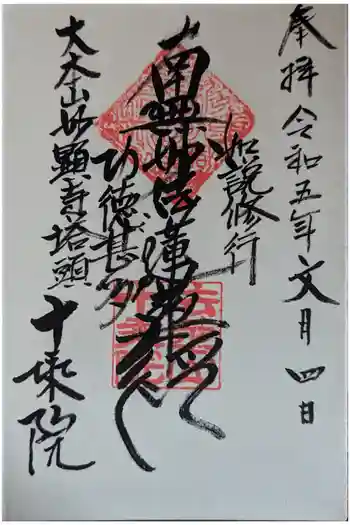 奉拝 令和五年文月四日
如説修行
南無妙法蓮華経
功徳甚多
大本山妙顕寺塔頭
十乗院